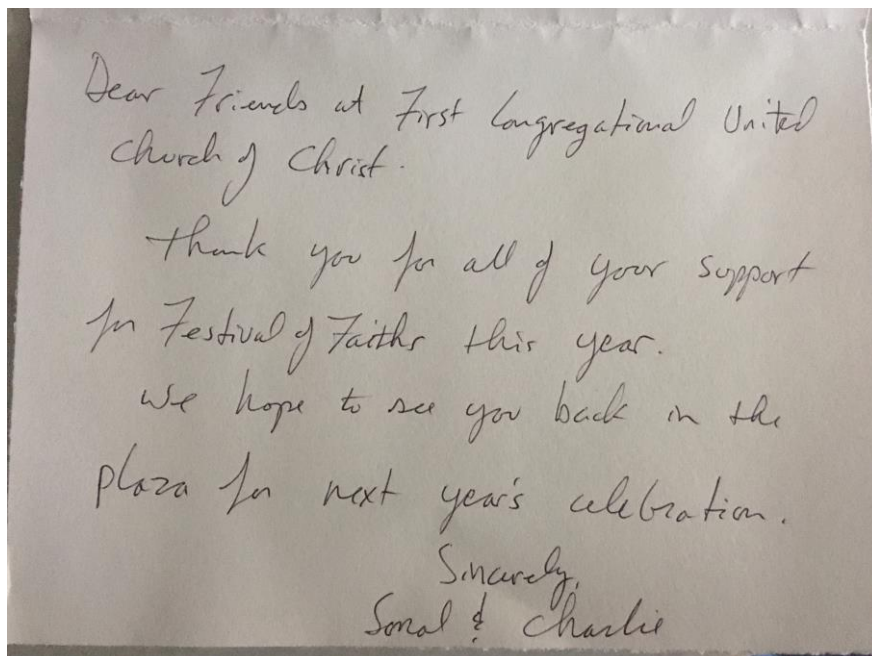 Dear Friends at First Congregational United
Church of Christ.
Thank you for all of your support
for Festival of Faiths this year.
We hope to see you back in the
plaza for next year's celebration.
Sincerely,
Sonal & Charlie